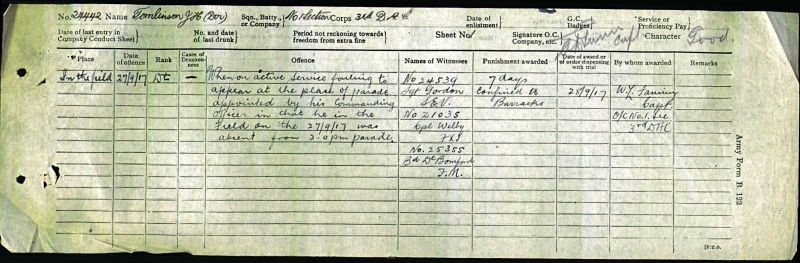 No. 24442 Name Tomlinson J H (Dvr) Sqn., Batty., or Company No 1 Section Corps 3rd D.A.C. Date of enlistment G.C. Badges Service or Proficiency Pay
Date of last entry in Company Conduct Sheet No. and date of last drunk Period not reckoning towards freedom from extra fine Sheet No. 1 Signature O.C. Company, etc. Capt Character Good
Place Date of offence Rank Cases of Drunkenness Offence Names of Witnesses Punishment awarded Date of award or of order dispensing with trial By whom awarded Remarks
In the field 27/9/17 — When on active Service failing to No 24539 7 days 28/9/17
appear at the place of parade Sgt Gordon Confined to
appointed by his Commanding Barracks Capt.
officer in that he in the No 21035 O/C No. 1. Sec
Field on the 27/9/17 was Cpl Welby 3rd DAC
absent from 3.0 pm parade
No. 25355
F.M.
Army Form B. 122
[P.T.O.